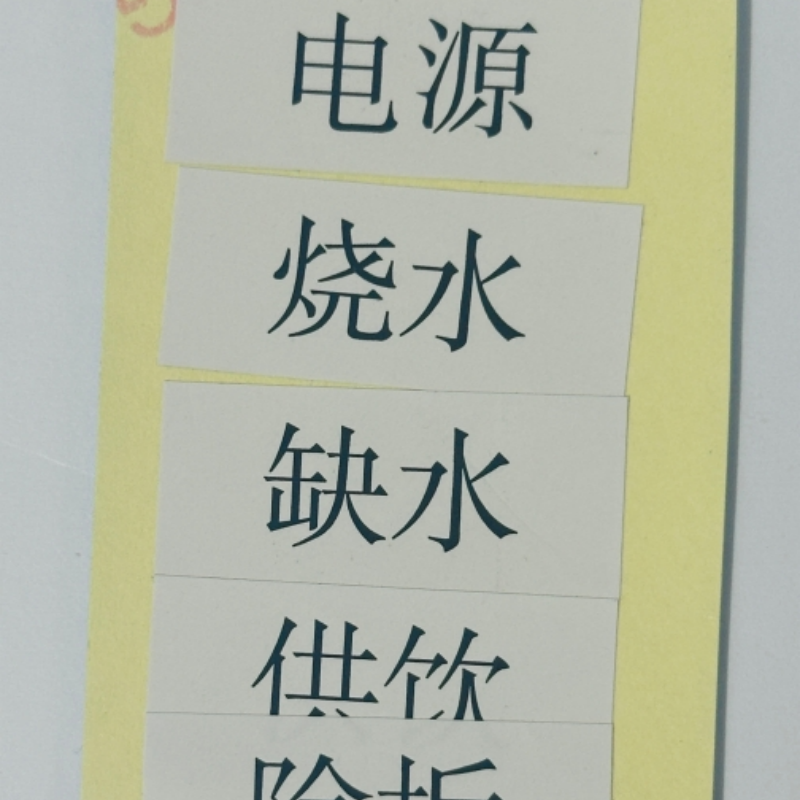 电源
烧水
缺水
供饮